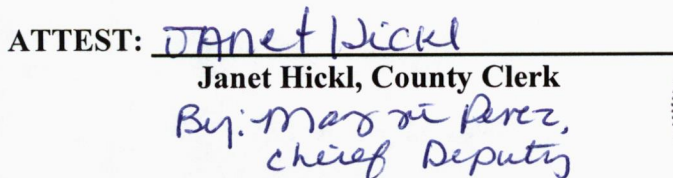 ATTEST: Janet Hickl
Janet Hickl, County Clerk
By: Margie Perez,
Chief Deputy